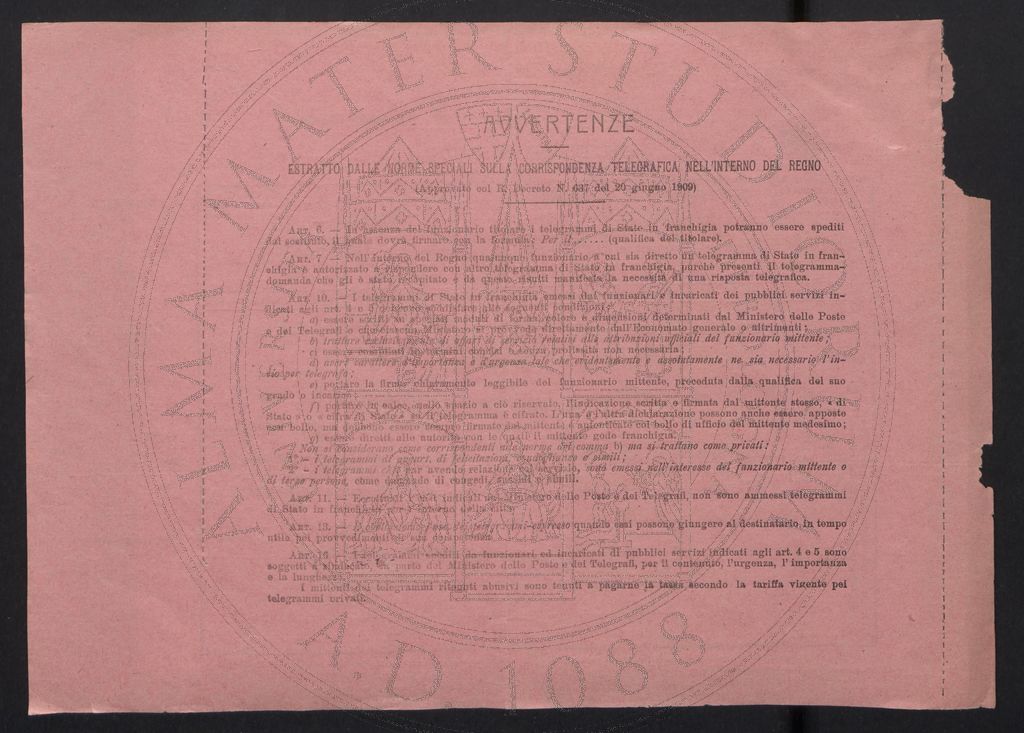 ALMA MATER STUDIORUM
A.D. 1088
AVVERTENZE
ESTRATTO DALLE NORME SPECIALI SULLA CORRISPONDENZA TELEGRAFICA NELL'INTERNO DEL REGNO
(Approvate col R. Decreto N. 637 del 20 giugno 1909)
ART. 6. — In assenza del funzionario titolare i telegrammi di Stato in franchigia potranno essere spediti
dal sostituto, il quale dovrà firmare con la formula: Per il ..... (qualifica del titolare).
ART. 7. — Nell'interno del Regno qualunque funzionario a cui sia diretto un telegramma di Stato in fran-
chigia è autorizzato a rispondere con altro telegramma di Stato in franchigia, purchè presenti il telegramma-
domanda che gli è stato recapitato e da questo risulti manifesta la necessità di una risposta telegrafica.
ART. 10. — I telegrammi di Stato in franchigia emessi dai funzionari e incaricati dei pubblici servizi in-
dicati agli art. 4 e 5 debbono soddisfare alle seguenti condizioni:
a) essere scritti su speciali moduli di forma, colore e dimensioni determinati dal Ministero delle Poste
e dei Telegrafi e che ciascun Ministero si provvede direttamente dall'Economato generale o altrimenti;
b) trattare esclusivamente di affari di servizio relativi alle attribuzioni ufficiali del funzionario mittente;
c) essere compilati in termini concisi e senza prolissità non necessaria;
d) aver carattere d'importanza e d'urgenza tale che evidentemente e assolutamente ne sia necessario l'in-
vio per telegrafo;
e) portare la firma chiaramente leggibile del funzionario mittente, preceduta dalla qualifica del suo
grado o incarico;
f) portare in calce, nello spazio a ciò riservato, l'indicazione scritta e firmata dal mittente stesso, « di
Stato » o « cifra di Stato » se il telegramma è cifrato. L'una e l'altra dichiarazione possono anche essere apposte
con bollo, ma debbono essere sempre firmate dal mittente e autenticate col bollo di ufficio del mittente medesimo;
g) essere diretti alle autorità con le quali il mittente gode franchigia.
Non si considerano come corrispondenti alle norme del comma b) ma si trattano come privati:
1° - i telegrammi di auguri, di felicitazioni, condoglianze e simili;
2° - i telegrammi che pur avendo relazione col servizio, sono emessi nell'interesse del funzionario mittente o
di terze persone, come domande di congedi, sussidi e simili.
ART. 11. — Eccettuati i casi indicati dal Ministero delle Poste e dei Telegrafi, non sono ammessi telegrammi
di Stato in franchigia per l'interno delle città.
ART. 13. — È consentito l'uso dei telegrammi-espresso quando essi possono giungere al destinatario in tempo
utile pei provvedimenti di sua competenza.
ART. 16. — I telegrammi spediti da funzionari ed incaricati di pubblici servizi indicati agli art. 4 e 5 sono
soggetti a sindacato, da parte del Ministero delle Poste e dei Telegrafi, per il contenuto, l'urgenza, l'importanza
e la lunghezza.
I mittenti dei telegrammi ritenuti abusivi sono tenuti a pagarne la tassa secondo la tariffa vigente pei
telegrammi privati.